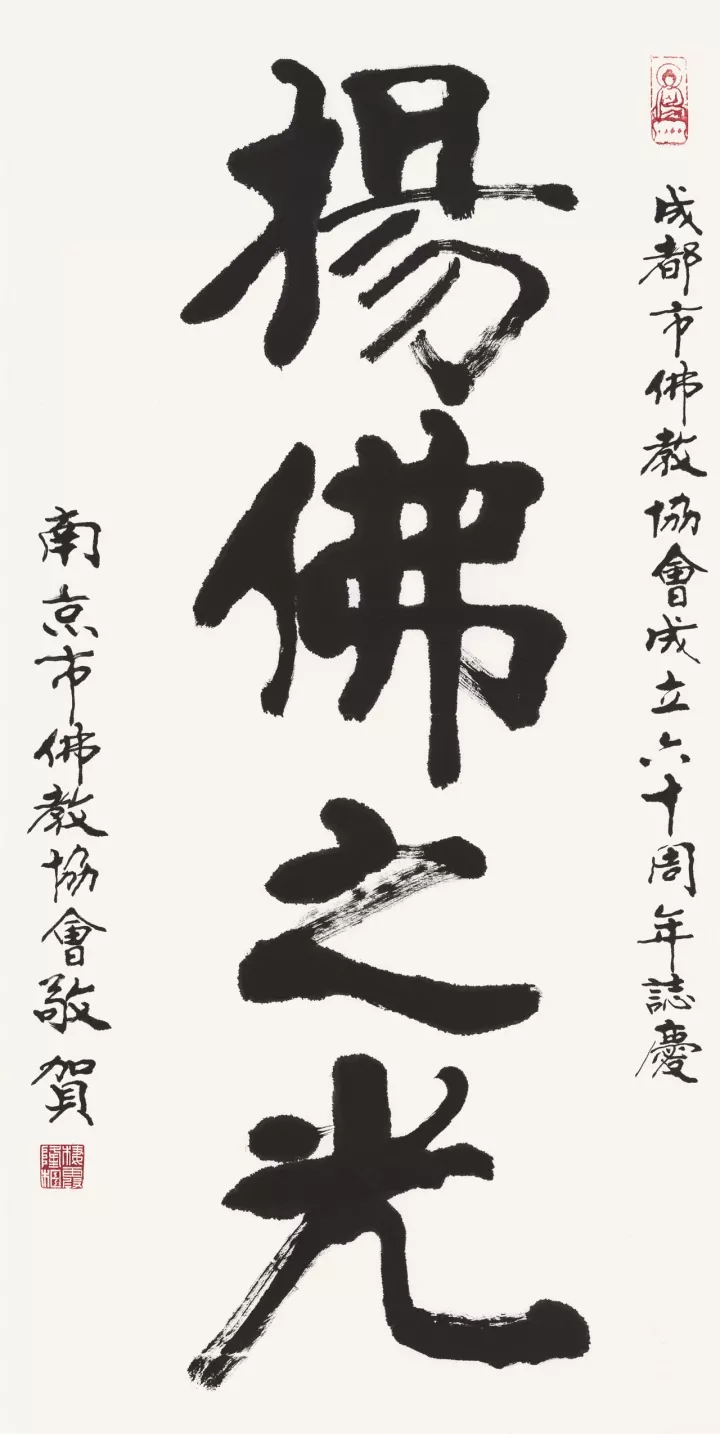 成都市佛教協會成立六十周年誌慶
揚佛之光
南京市佛教協會敬賀
棲霞隆相